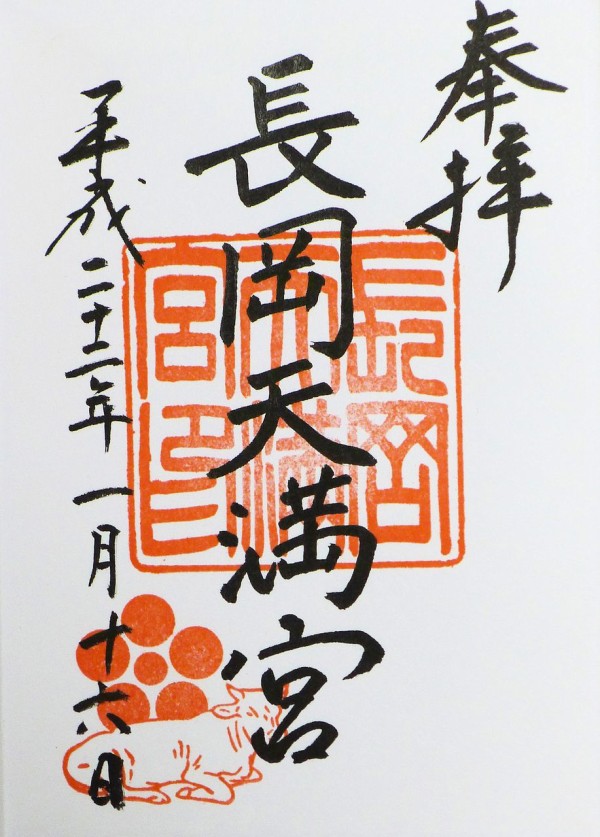 奉拝
長岡天満宮
平成二十二年一月十六日
長岡
天満
宮印